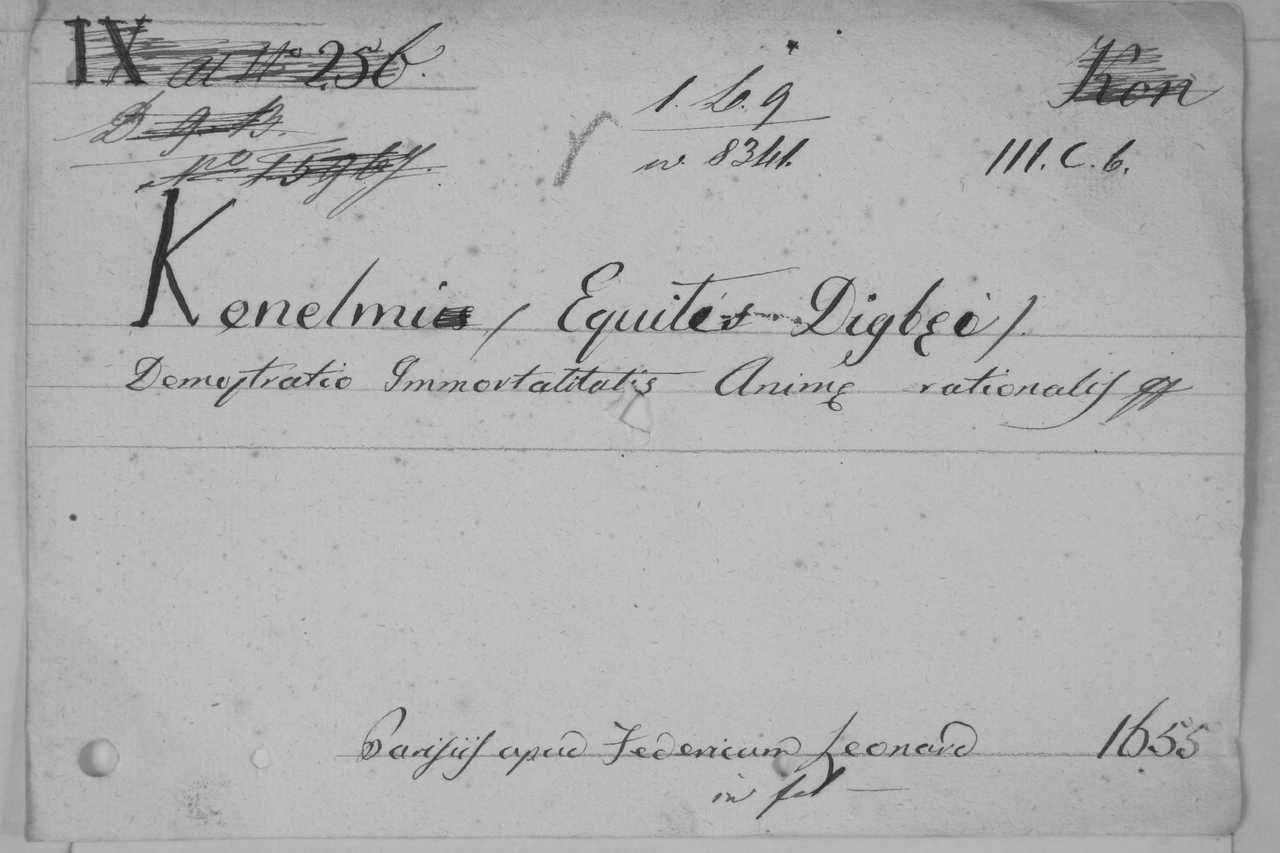 IX at No 256. 1. L. 9 Kon
D. 9. B. w 8341. III. C. 6.
No
Kenelmi / Equites Digbęi /
Demostratio Immortalitatis Animę rationalis
Parisiis apud Federicum Leonard 1655
in fol